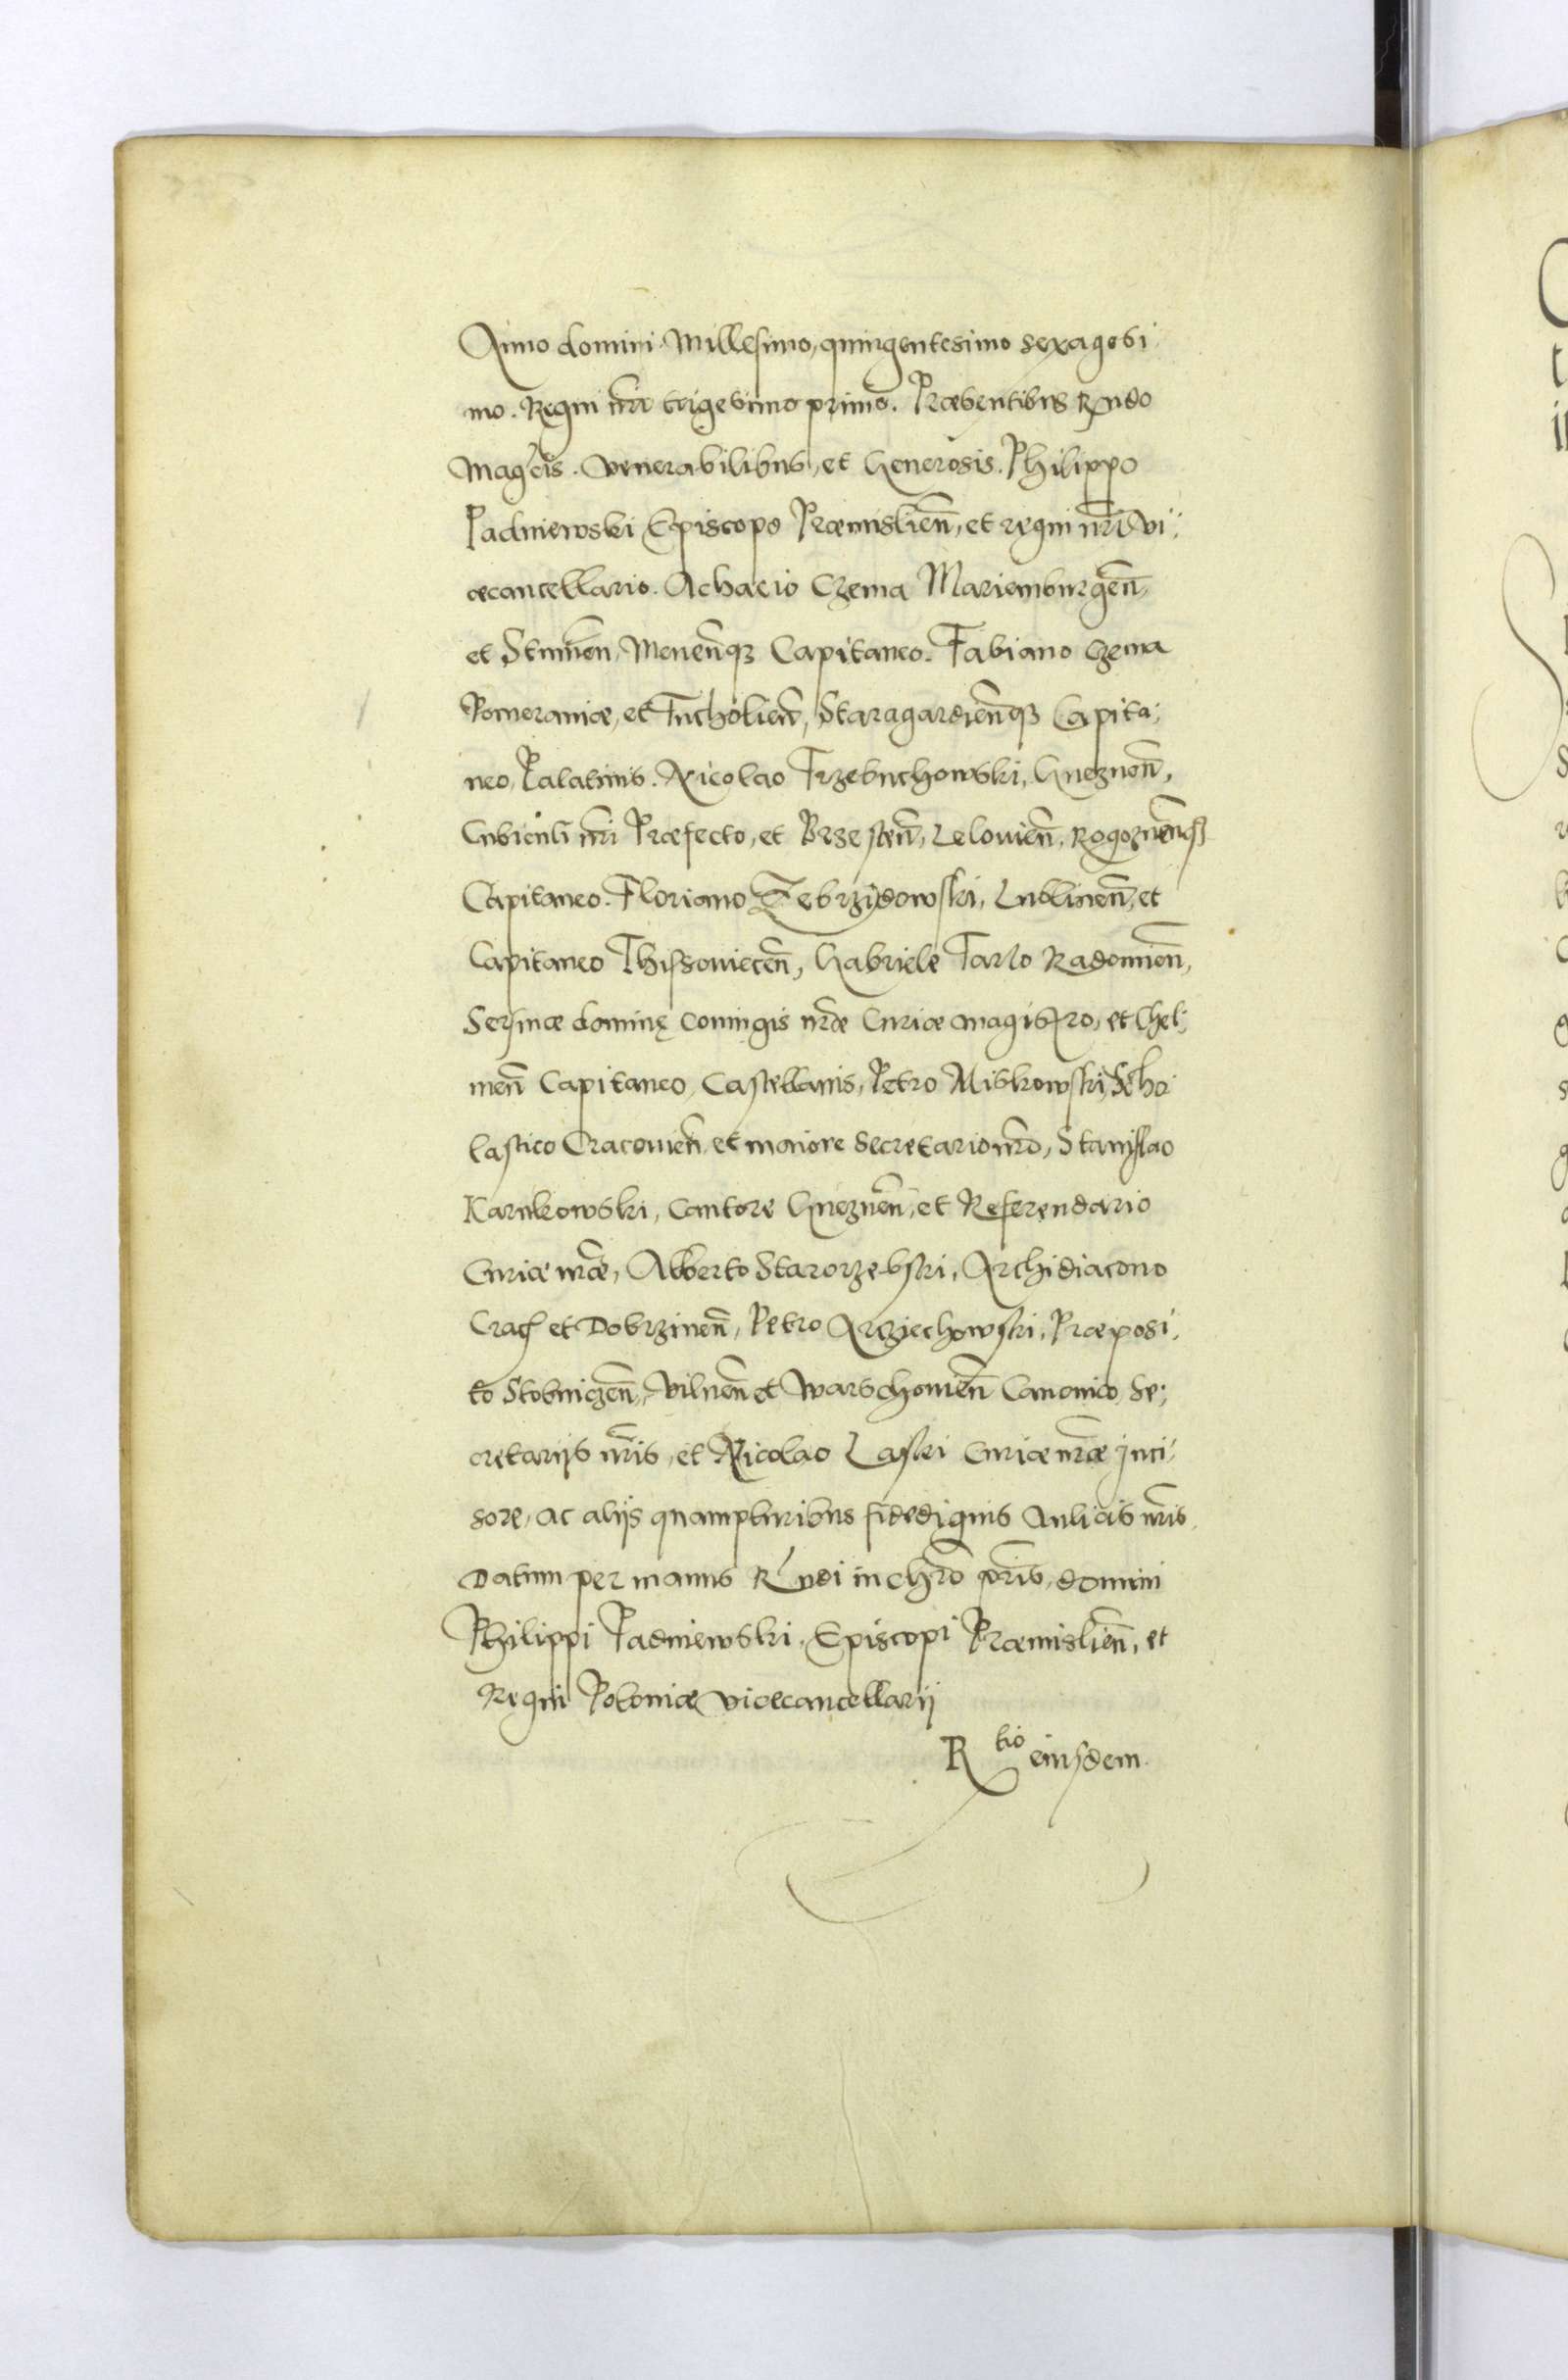 Anno domini Millesimo, quingentesimo sexagesi
mo. Regni nri trigesimo primo. Præsentibus Rndo
Mag'cis. Venerabilibus, et Generosis. Philippo
Padniewski Episcopo Præmislien, et regni nri Vi
cecancellario. Achacio Czema Mariemburgen,
et Stumen, Mevenq3 Capitaneo. Fabiano Czema
Pomeraniæ, et Tucholien, Staragardienq3 Capita
neo, Palatinis. Nicolao Trzebuchowski, Gneznen,
Cubiculi nri Præfecto, et Brzesten, Lelovien, Rogoznenq3
Capitaneo. Floriano Zebrzÿdowski, Lublinen, et
Capitaneo Thissoviecen, Gabriele Tarlo Radomien,
Sersmæ dominę coniugis nræ Curiæ magistro, et Chel
men Capitaneo, Castellanis, Petro Miskowski, Scho
lastico Cracovien et maiore Secretario nro, Stanislao
Karnkowski, Cantore Gneznen, et Referendario
Curiæ nræ, Alberto Starorzebski, Archidiacono
Crac et Dobrzinen, Petro Orziechowski, Præposi
to Stobniczen, Vilnen et Warschovien Canonico, Se
cretarijs nris, et Nicolao Laski Curiæ nræ Inci
sore, ac alijs quampluribus fidedignis Aulicis nris.
Datum per manus Rndi in chro pris, domini
Philippi Padniewski, Episcopi Præmislien, et
Regni Poloniæ vicecancellarij
Rtio eiusdem.